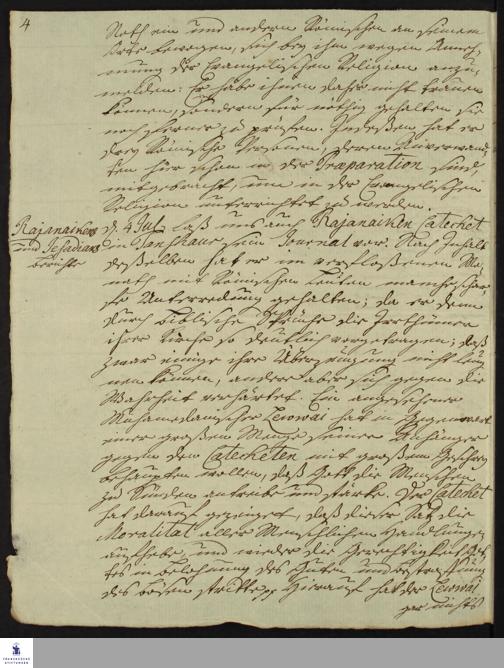 4
Noth ein und andern Römischen an seinem
Orte bewogen, sich bey ihm wegen Anneh-
mung der Evangelischen Religion anzu-
melden: Er habe ihnen doch nicht trauen
können, sondern für nöthig gehalten sie
noch ferner zu prüfen. Indeßen hat er
drey Römische Personen, deren Anverwand-
ten hier schon in der Præparation sind,
mitgebracht, um in der Evangelischen
Religion unterrichtet zu werden.
Rajanaikens
und Jesadians
berichte
d. 4 Jul. laß uns auch Rajanaiken Catechet
in Tanschaur sein Journal vor. Nach Inhalt
deßelben hat er im verfloßenen Mo-
nath mit Römischen Leuten manche schar-
fe Unterredung gehalten; da er denn
durch biblische Sprüche die Irrthümer
ihrer Kirche so deutlich vorgetragen; daß
zwar einige ihre Überzeugung nicht läug-
nen können, andere aber sich gegen die
Wahrheit verhärtet. Ein angesehener
Muhamedanischer Lewwai hat in Gegenwart
einer großen Menge seiner Anhänger
gegen den Catecheten mit großem Geschrey
behaupten wollen, daß Gott die Menschen
zu Sünden antreibe und stärke. Der Catechet
hat darauf gezeiget, daß dieser Satz die
Moralitat aller Menschlichen Handlungen
aufhebe, und wieder die Gerechtigkeit Got-
tes in Belohnung des Guten und Bestrafung
des bösen streite pp Hierauf hat der Lewwai
gar nichts
FRANCKESCHE
STIFTUNGEN